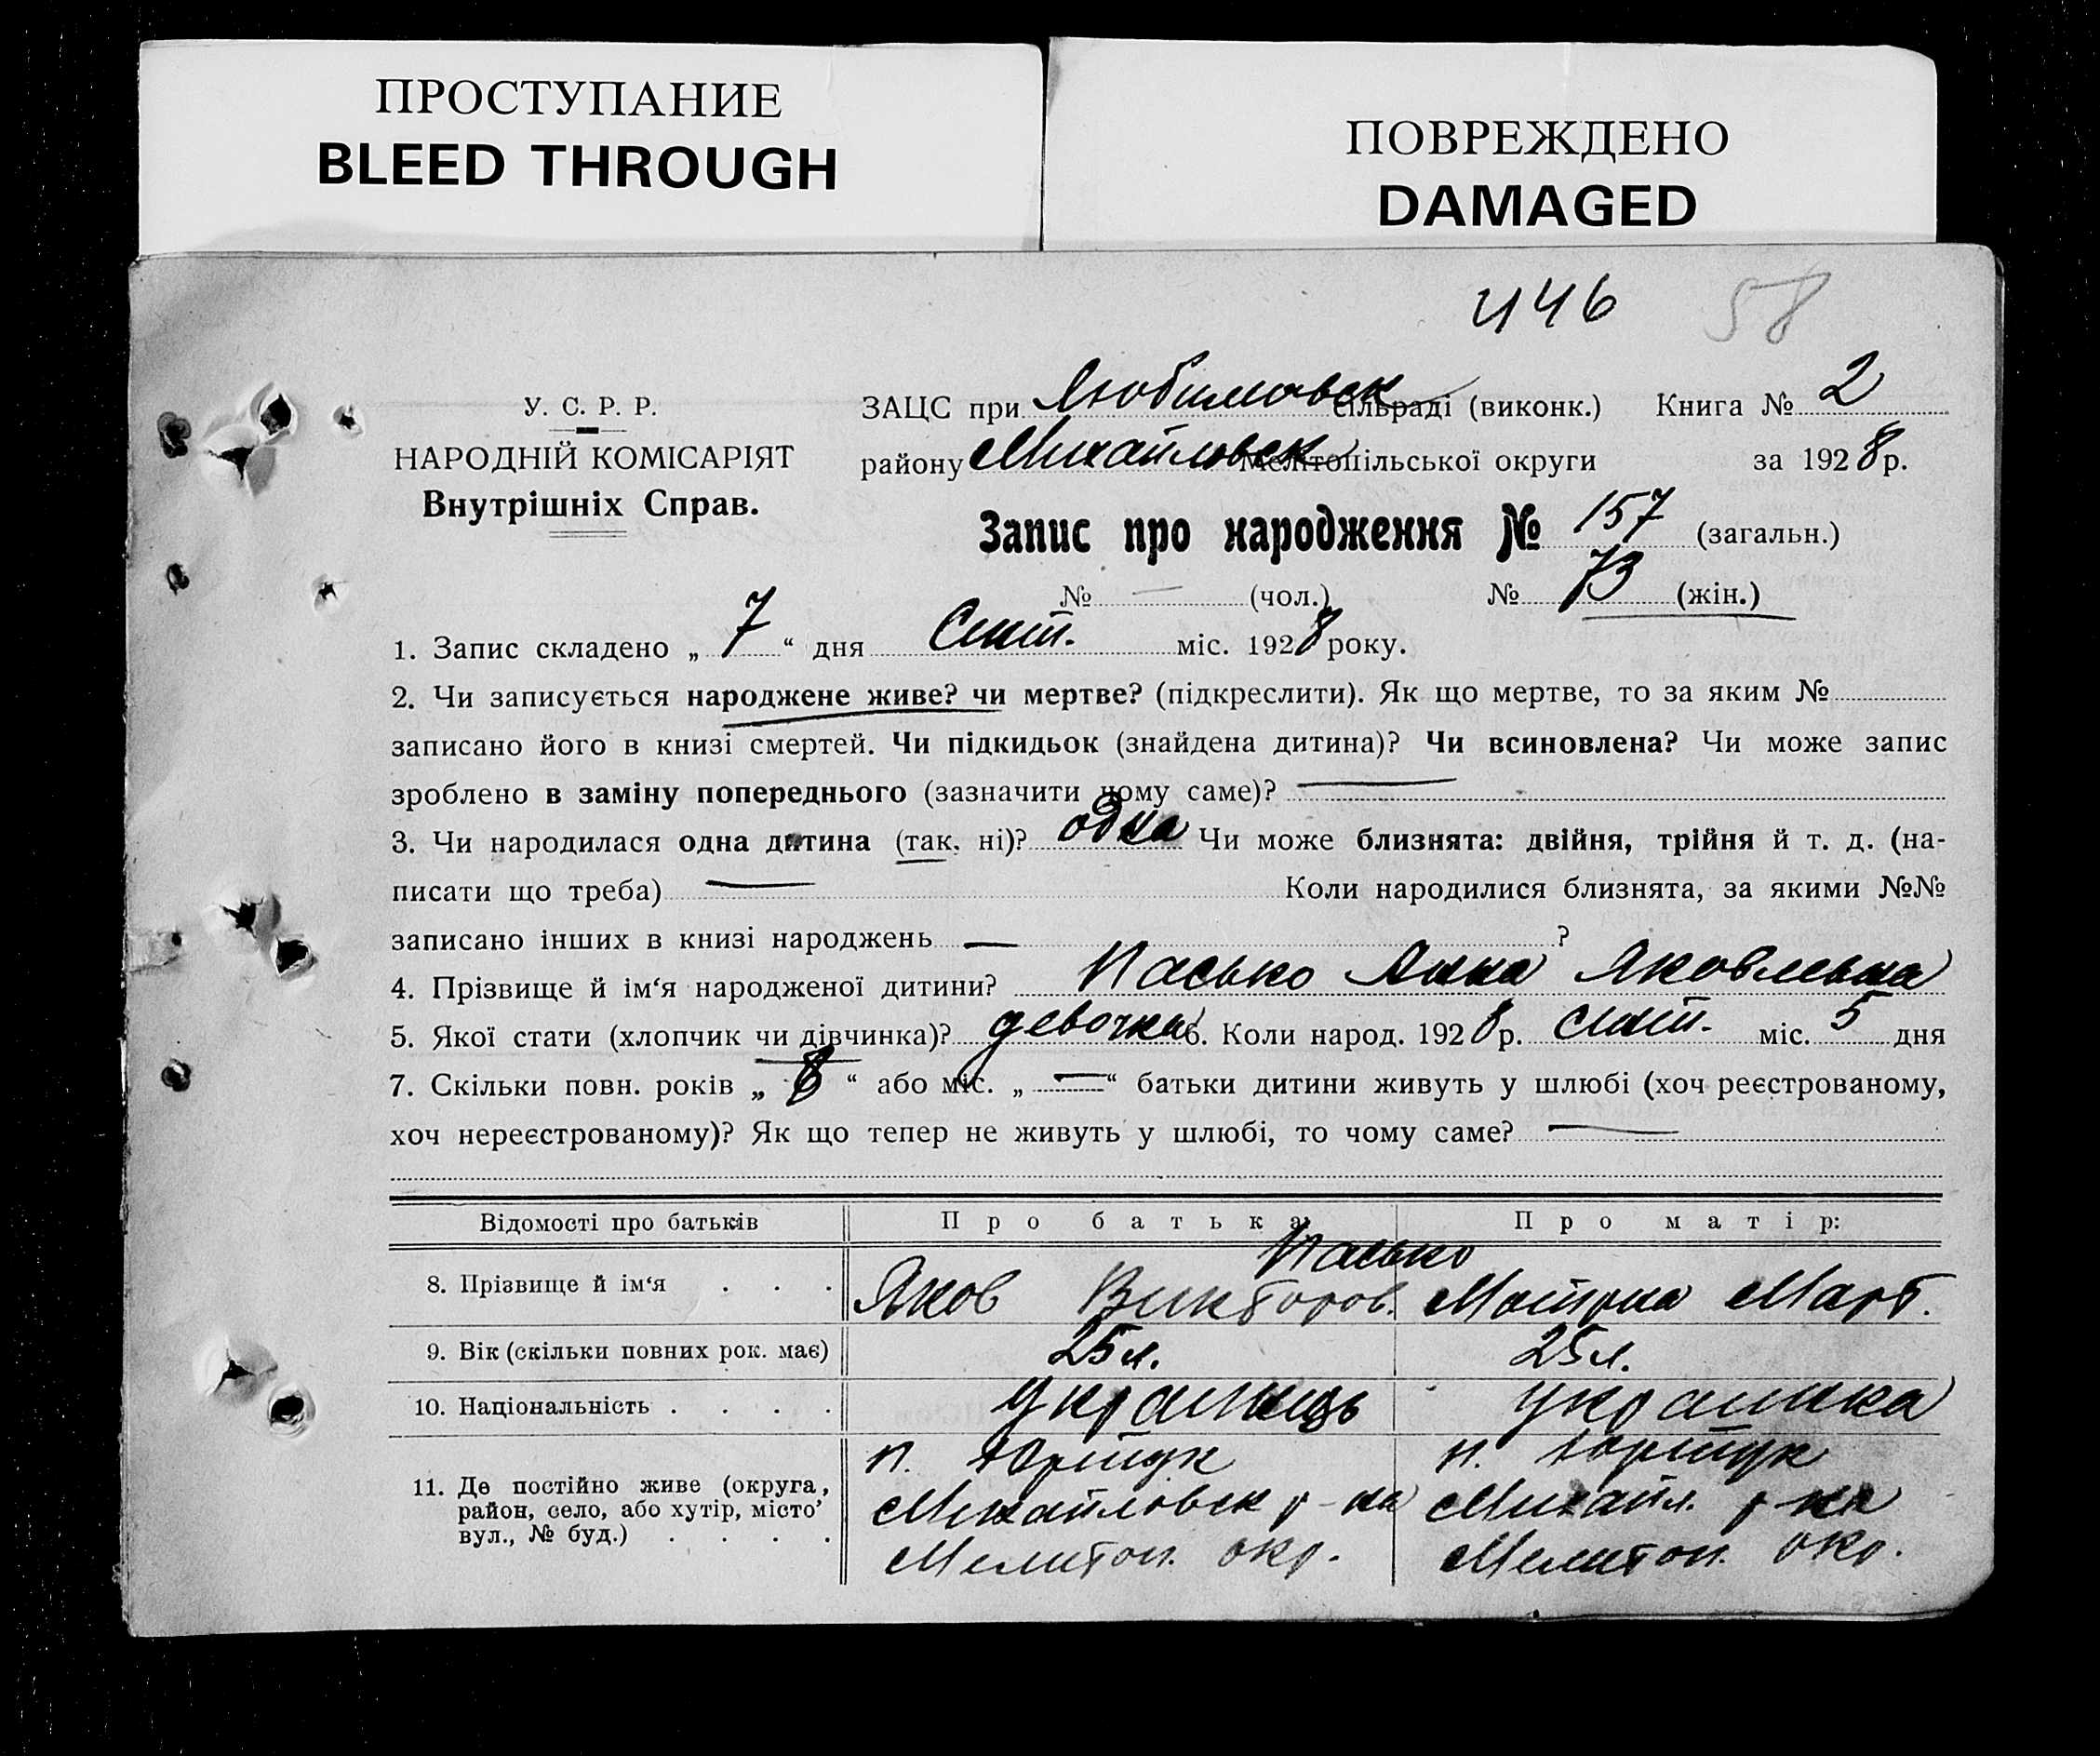 ПРОСТУПАНИЕ
BLEED THROUGH
ПОВРЕЖДЕНО
DAMAGED
446 58
У. С. Р. Р.
НАРОДНІЙ КОМІСАРІЯТ
Внутрішніх Справ.
ЗАЦС при Любимовск сільраді (виконк.) Книга № 2
району Михайловск Мелітопільської округи за 1928 р.
Запис про народження № 157 (загальн.)
№ — (чол.) № 73 (жін.)
1. Запис складено „ 7 “ дня Сент. міс. 1928 року.
2. Чи записується народжене живе? чи мертве? (підкреслити). Як що мертве, то за яким №
записано його в книзі смертей. Чи підкидьок (знайдена дитина)? Чи всиновлена? Чи може запис
зроблено в заміну попереднього (зазначити чому саме)? —
3. Чи народилася одна дитина (так, ні)? одна Чи може близнята: двійня, трійня й т. д. (на-
писати що треба) — Коли народилися близнята, за якими №№
записано інших в книзі народжень — ?
4. Прізвище й ім‘я народженої дитини? Пасько Анна Яковлевна
5. Якої стати (хлопчик чи дівчинка)? девочка 6. Коли народ. 1928 р. сент. міс. 5 дня
7. Скільки повн. років „ 8 “ або міс. „ — “ батьки дитини живуть у шлюбі (хоч реєстрованому,
хоч нереєстрованому)? Як що тепер не живуть у шлюбі, то чому саме? —
Відомості про батьків Про батька: Про матір:
Пасько
8. Прізвище й ім‘я . . . Яков Викторов. Мотрона Март.
9. Вік (скільки повних рок. має) 25 л. 25 л.
10. Національність . . . . украинець украинка
11. Де постійно живе (округа, район, село, або хутір, місто, вул., № буд.) . . . .
п. п.
Михайловск р-на Михайл. р-на
Мелитоп. окр. Мелитоп. окр.